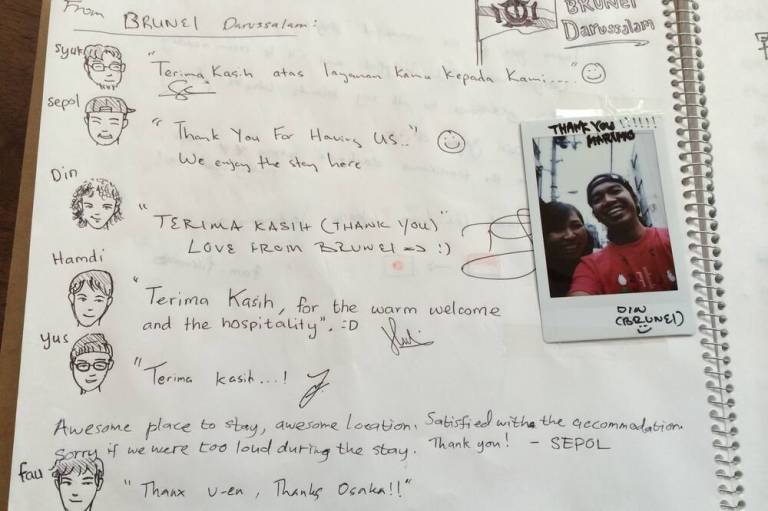 From BRUNEI Darussalam:
BRUNEI
Darussalam
Syuk
"Terima Kasih atas layanan kamu kepada Kami..."
sepol
"Thank You For Having US.."
We enjoy the stay here
THANK YOU !!!!!!
Din
"TERIMA KASIH (THANK YOU)"
LOVE FROM BRUNEI => :)
Hamdi
"Terima Kasih, for the warm welcome
and the hospitality". :D
DIN
(BRUNEI)
yus
"Terima kasih...!
Awesome place to stay, awesome location. Satisfied with the accommodation.
Sorry if we were too loud during the stay. Thank you! - SEPOL
"Thanx u-en, Thanks Osaka!!"